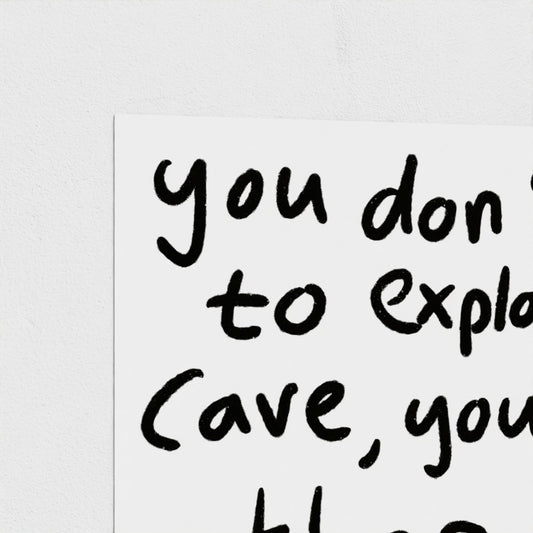 you don'
to explo
cave, you